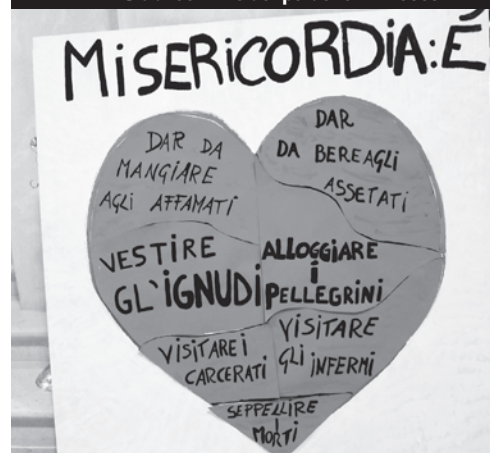 MiSERiCORDiA: É
DAR DA
MANGIARE
AGLI AFFAMATI
DAR
DA BERE AGLI
ASSETATI
VESTIRE
GL'IGNUDI
ALLOGGIARE
i
PELLEGRINI
VISITARE I
CARCERATI
VISITARE
GLI INFERMI
SEPPELLIRE
I
MORTI